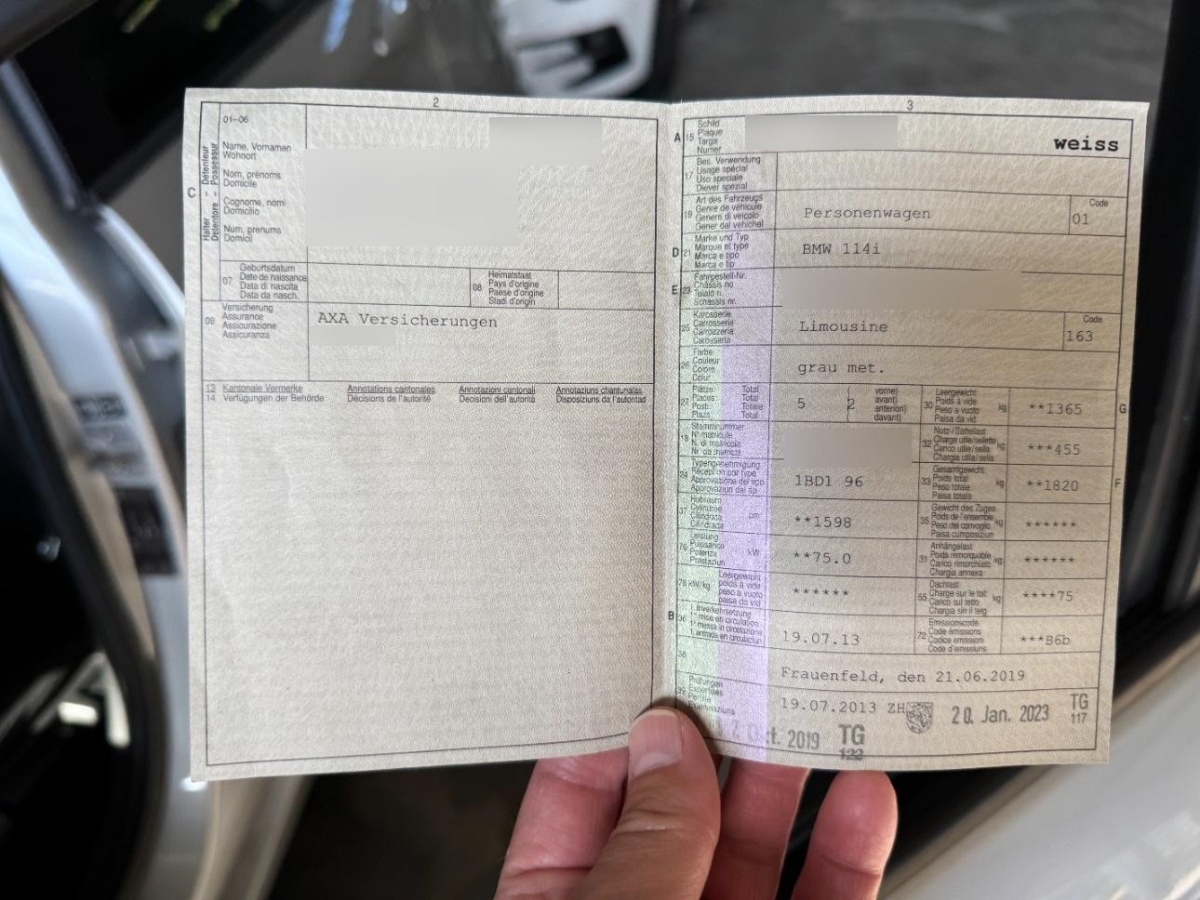 2
01-06
Halter - Détenteur
Detentore - Possessur
C
Name, Vornamen
Wohnort
Nom, prénoms
Domicile
Cognome, nomi
Domicilio
Num, prenums
Domicil
07
Geburtsdatum
Date de naissance
Data di nascita
Data da nasch.
08
Heimatstaat
Pays d'origine
Paese d'origine
Stadi d'origin
09
Versicherung
Assurance
Assicurazione
Assicuranza
AXA Versicherungen
13
14
Kantonale Vermerke
Verfügungen der Behörde
Annotations cantonales
Décisions de l'autorité
Annotazioni cantonali
Decisioni dell'autorità
Annotaziuns chantunalas
Disposiziuns da l'autoritad
3
A
15
Schild
Plaque
Targa
Numer
weiss
17
Bes. Verwendung
Usage spécial
Uso speciale
Diever spezial
19
Art des Fahrzeugs
Genre de véhicule
Genere di veicolo
Gener dal vehichel
Personenwagen
Code
01
D
21
Marke und Typ
Marque et type
Marca e tipo
Marca e tip
BMW 114i
E
23
Fahrgestell-Nr.
Châssis no
Telaio n.
Schassis nr.
25
Karosserie
Carrosserie
Carrozzeria
Carossaria
Limousine
Code
163
26
Farbe
Couleur
Colore
Colur
grau met.
27
Plätze: Total
Places: Total
Posti: Totale
Plazs: Total
5
(
2
vorne)
avant)
anteriori)
davant)
30
Leergewicht
Poids à vide
Peso a vuoto
Paisa da vid
kg
**1365
G
18
Stammnummer
N° matricule
N. di matricola
Nr. da matricla
32
Nutz-/Sattellast
Charge utile/sellette
Carico utile/sella
Chargia utila/sella
kg
***455
24
Typengenehmigung
Réception par type
Approvazione del tipo
Approvaziun dal tip
1BD1 96
33
Gesamtgewicht
Poids total
Peso totale
Paisa totala
kg
**1820
F
37
Hubraum
Cylindrée
Cilindrata
Cilindrada
cm³
**1598
35
Gewicht des Zuges
Poids de l'ensemble
Peso del convoglio
Paisa cumposiziun
kg
******
76
Leistung
Puissance
Potenza
Prestaziun
kW
**75.0
31
Anhängelast
Poids remorquable
Carico rimorchiato
Chargia annexa
kg
******
78 kW/kg
Leergewicht
poids à vide
peso a vuoto
paisa da vid
******
55
Dachlast
Charge sur le toit
Carico sul tetto
Chargia sin il tetg
kg
****75
B
36
1. Inverkehrsetzung
1re mise en circulation
1a messa in circolazione
1. entrada en circulaziun
19.07.13
72
Emissionscode
Code émissions
Codice emissioni
Code d'emissiuns
***B6b
38
Frauenfeld, den 21.06.2019
39
Prüfungen
Expertises
Perizie
Examinaziuns
19.07.2013 ZH
20. Jan. 2023
TG
117
kt. 2019
TG
122